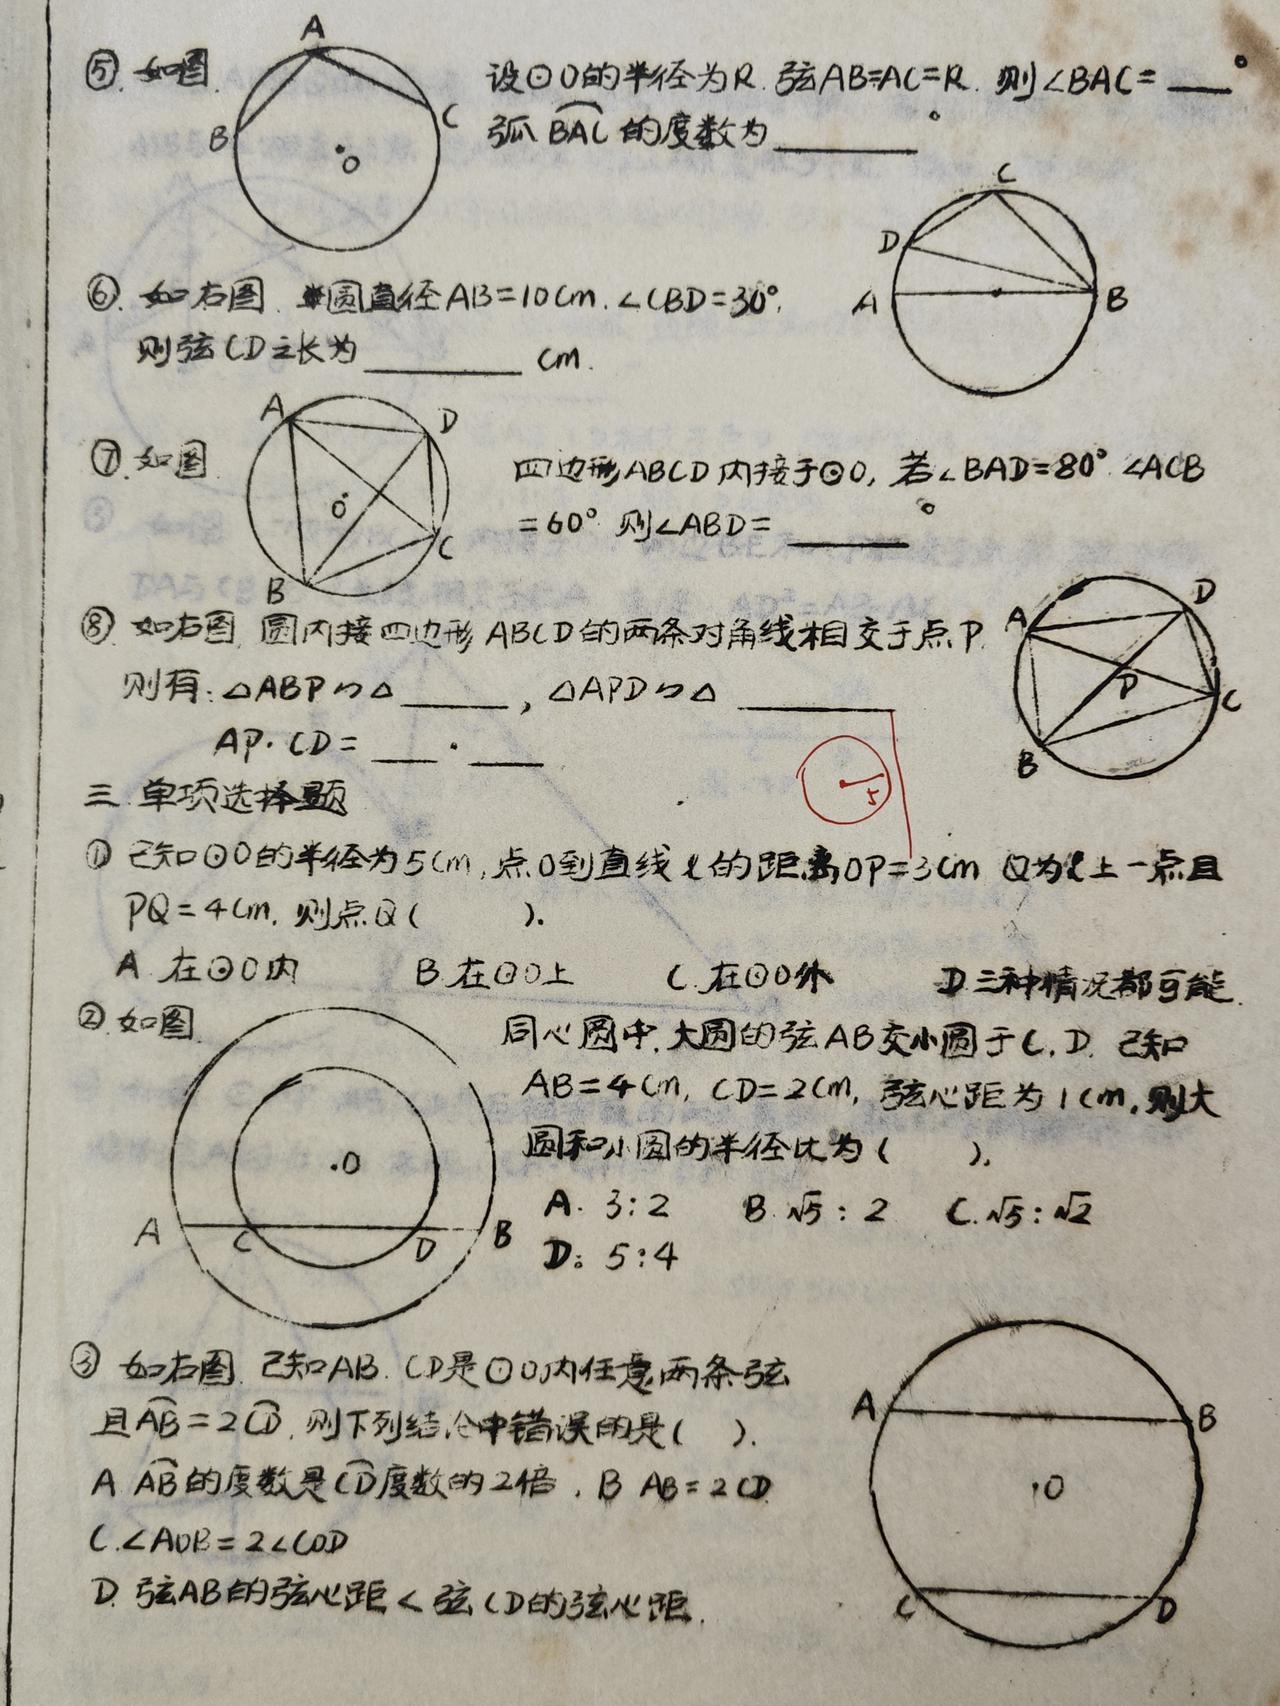 ⑤. 如图. 设⊙O的半径为R. 弦AB=AC=R. 则∠BAC=___°
弧BAC的度数为______°
A
B
C
O
⑥. 如右图. 圆直径AB=10cm. ∠CBD=30°.
则弦CD之长为______ cm.
C
D
A
B
⑦. 如图 四边形ABCD内接于⊙O, 若∠BAD=80° ∠ACB
=60° 则∠ABD=______°
A
D
O
C
B
⑧. 如右图. 圆内接四边形ABCD的两条对角线相交于点P.
则有: △ABP∽△_____, △APD∽△______
AP·CD=___·___
A
D
P
C
B
5
三. 单项选择题
① 已知⊙O的半径为5cm, 点O到直线l的距离OP=3cm Q为l上一点且
PQ=4cm, 则点Q( ).
A. 在⊙O内 B. 在⊙O上 C. 在⊙O外 D. 三种情况都可能.
②. 如图. 同心圆中, 大圆的弦AB交小圆于C, D. 已知
AB=4cm, CD=2cm, 弦心距为1cm, 则大
圆和小圆的半径比为( ).
A. 3:2 B. √5:2 C. √5:√2
D. 5:4
O
A
C
D
B
③ 如右图. 已知AB. CD是⊙O内任意两条弦
且AB=2CD, 则下列结论中错误的是( ).
A AB的度数是CD度数的2倍. B AB=2CD
C. ∠AOB=2∠COD
D. 弦AB的弦心距<弦CD的弦心距.
A
B
O
C
D